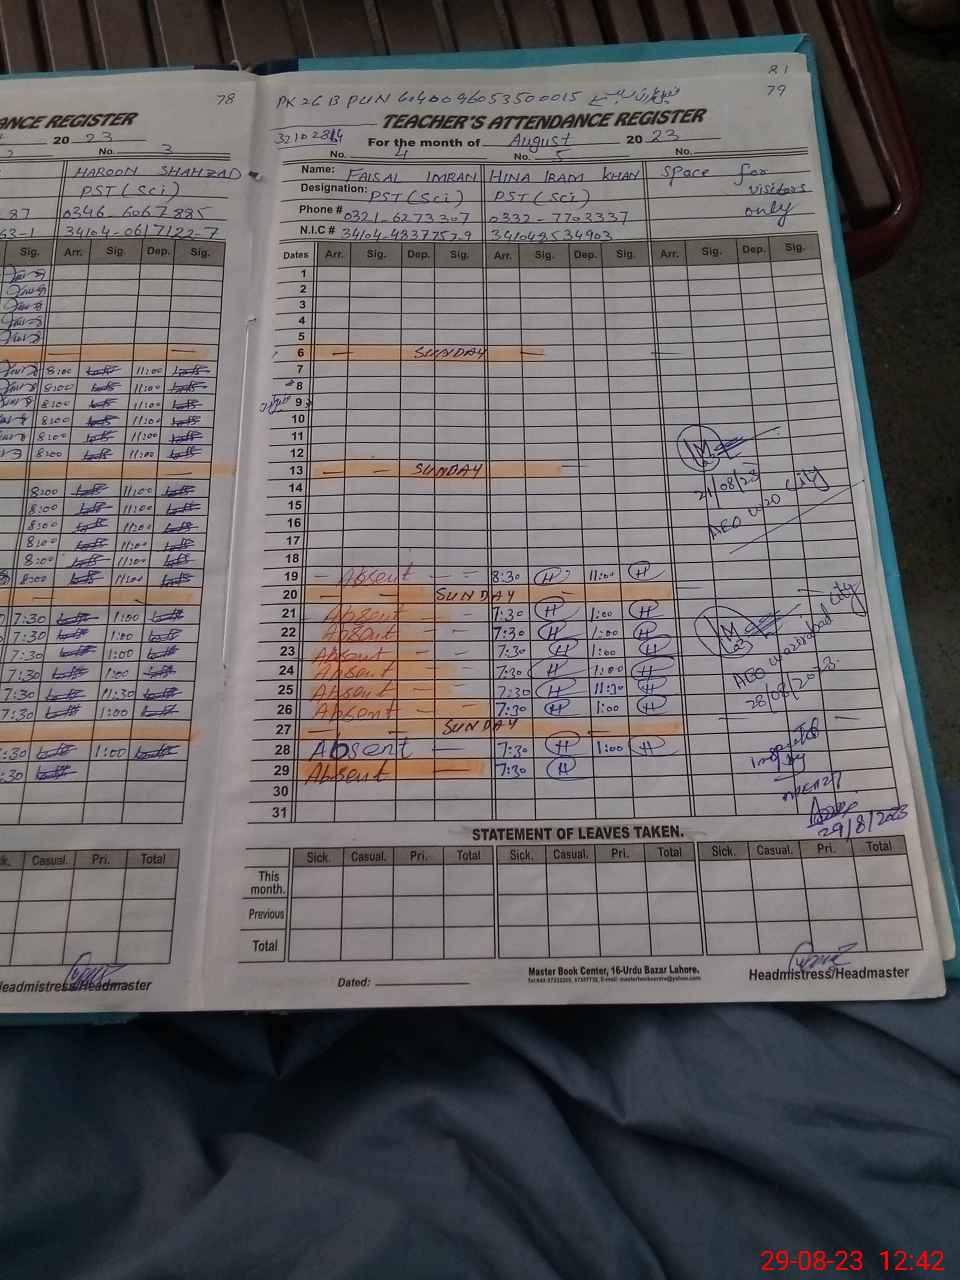 78
ANCE REGISTER
20 23
No. 3
HAROON SHAHZAD
PST (Sci)
-87 0346-6067885
63-1 34104-0617122-7
Sig. Arr. Sig. Dep. Sig.
8:00 11:00
8:00 11:00
8:00 11:00
8:00 11:00
8:00 11:00
8:00 11:00
8:00 11:00
8:00 11:00
8:00 11:00
8:00 11:00
8:00 11:00
8:00 11:00
7:30 1:00
7:30 1:00
7:30 1:00
7:30 1:00
7:30 11:30
7:30 1:00
:30 1:00
:30
Casual. Pri. Total
Headmistress/Headmaster
R1
79
TEACHER'S ATTENDANCE REGISTER
For the month of August 20 23
No. 4 No. 5 No.
Name: FAISAL IMRAN HINA IRAM KHAN Space for
Designation: PST (Sci) PST (Sci) visitors
Phone # 0321-6273307 0332-7703337 only
N.I.C # 34104-4837757-9 341048534903
Dates Arr. Sig. Dep. Sig. Arr. Sig. Dep. Sig. Arr. Sig. Dep. Sig.
1
2
3
4
5
6 — SUNDAY —
7
8
9
10
11
12
13 — — SUNDAY —
14
15
16
17
18
19 — Absent — — 8:30 H 11:00 H
20 — — SUNDAY
21 Absent — — 7:30 H 1:00 H
22 Absent — — 7:30 H 1:00 H
23 Absent — — 7:30 H 1:00 H
24 Absent — — 7:30 H 1:00 H
25 Absent — 7:30 H 11:30 H
26 Absent — 7:30 H 1:00 H
27 — — SUNDAY
28 Absent — 7:30 H 1:00 H
29 Absent — 7:30 H
30
31
21/08/23
AEO wzd City
AEO wazirabad City
28/08/2023
29/8/2023
STATEMENT OF LEAVES TAKEN.
Sick. Casual. Pri. Total Sick. Casual. Pri. Total Sick. Casual. Pri. Total
This month.
Previous
Total
Dated:
Master Book Center, 16-Urdu Bazar Lahore.
Headmistress/Headmaster
29-08-23 12:42